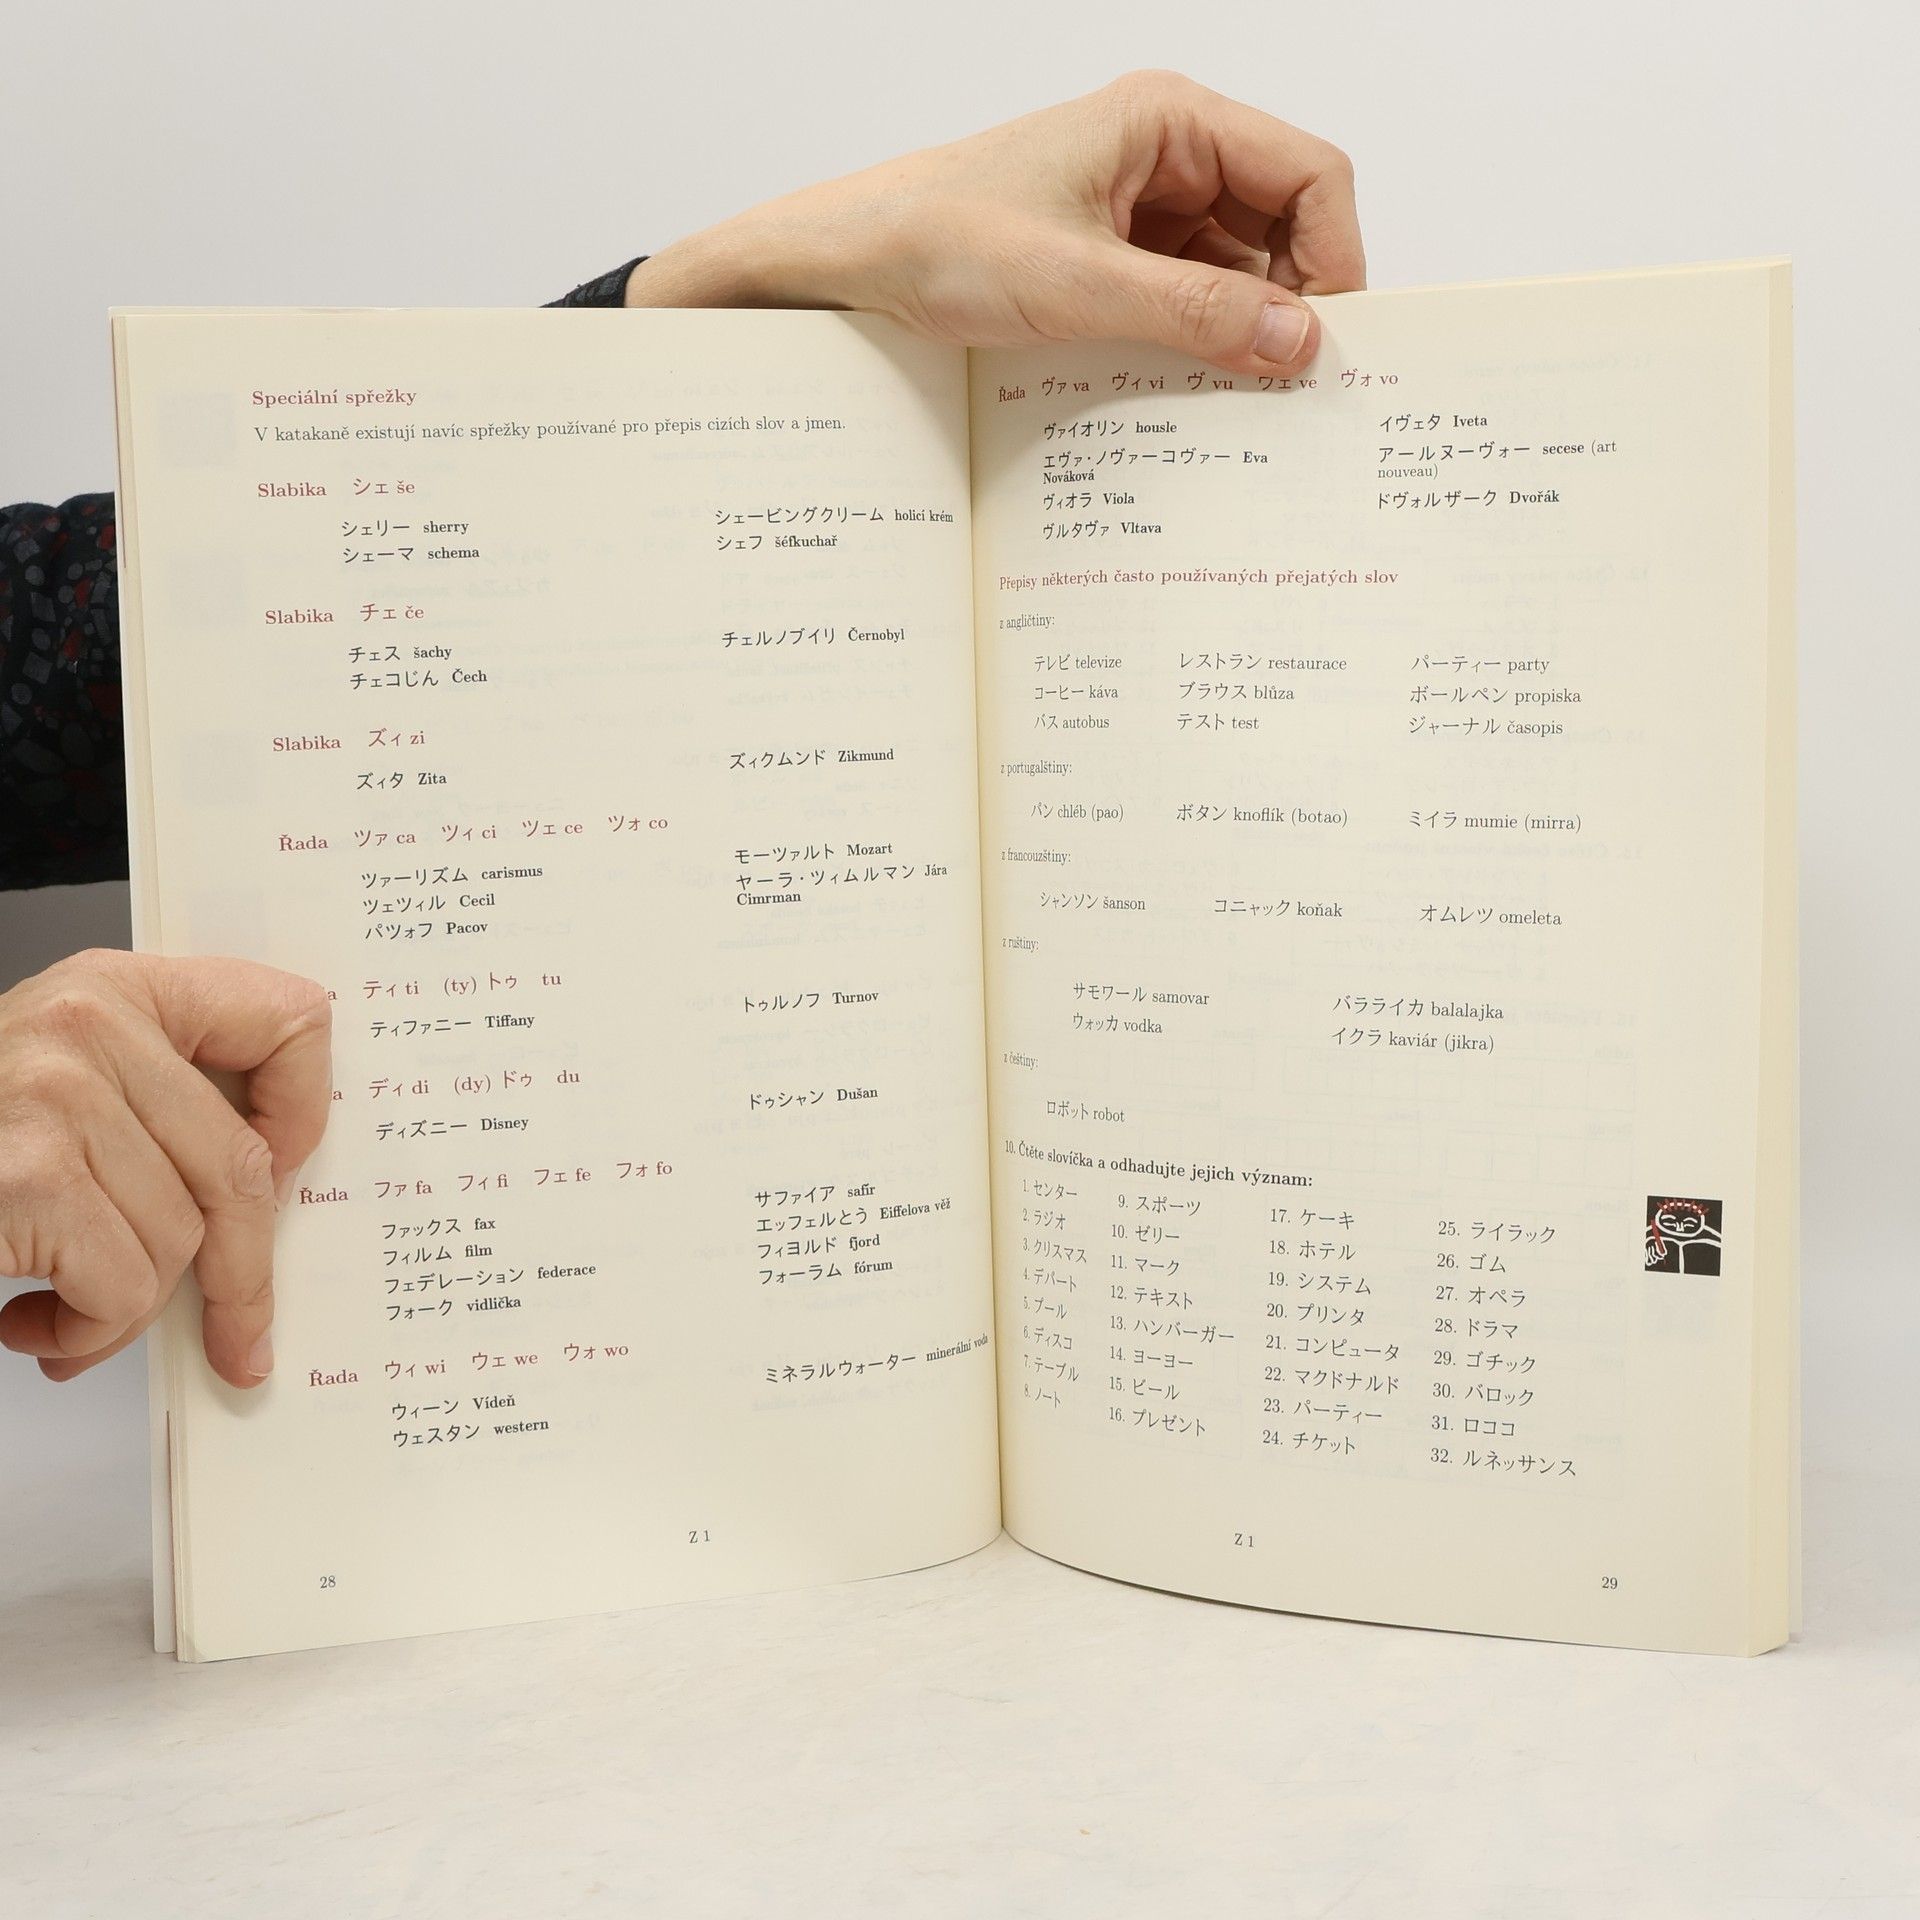 Speciální spřežky
V katakaně existují navíc spřežky používané pro přepis cizích slov a jmen.
Slabika シェ še
シェリー sherry
シェーマ schema
シェービングクリーム holicí krém
シェフ šéfkuchař
Slabika チェ če
チェス šachy
チェコじん Čech
チェルノブイリ Černobyl
Slabika ズィ zi
ズィタ Zita
ズィクムンド Zikmund
Řada ツァ ca ツィ ci ツェ ce ツォ co
ツァーリズム carismus
ツェツィル Cecil
パツォフ Pacov
モーツァルト Mozart
ヤーラ・ツィムルマン Jára
Cimrman
ティ ti (ty) トゥ tu
ティファニー Tiffany
トゥルノフ Turnov
ディ di (dy) ドゥ du
ディズニー Disney
ドゥシャン Dušan
Řada ファ fa フィ fi フェ fe フォ fo
ファックス fax
フィルム film
フェデレーション federace
フォーク vidlička
サファイア safír
エッフェルとう Eiffelova věž
フィヨルド fjord
フォーラム fórum
Řada ウィ wi ウェ we ウォ wo
ウィーン Vídeň
ウェスタン western
ミネラルウォーター minerální voda
Z 1
28
Řada ヴァ va ヴィ vi ヴ vu ヴェ ve ヴォ vo
ヴァイオリン housle
エヴァ・ノヴァーコヴァー Eva
Nováková
ヴィオラ Viola
ヴルタヴァ Vltava
イヴェタ Iveta
アールヌーヴォー secese (art
nouveau)
ドヴォルザーク Dvořák
Přepisy některých často používaných přejatých slov
z angličtiny:
テレビ televize レストラン restaurace パーティー party
コーヒー káva ブラウス blůza ボールペン propiska
バス autobus テスト test ジャーナル časopis
z portugalštiny:
パン chléb (pao) ボタン knoflík (botao) ミイラ mumie (mirra)
z francouzštiny:
シャンソン šanson コニャック koňak オムレツ omeleta
z ruštiny:
サモワール samovar バラライカ balalajka
ウォッカ vodka イクラ kaviár (jikra)
z češtiny:
ロボット robot
10. Čtěte slovíčka a odhadujte jejich význam:
1. センター
2. ラジオ
3. クリスマス
4. デパート
5. プール
6. ディスコ
7. テーブル
8. ノート
9. スポーツ
10. ゼリー
11. マーク
12. テキスト
13. ハンバーガー
14. ヨーヨー
15. ビール
16. プレゼント
17. ケーキ
18. ホテル
19. システム
20. プリンタ
21. コンピュータ
22. マクドナルド
23. パーティー
24. チケット
25. ライラック
26. ゴム
27. オペラ
28. ドラマ
29. ゴチック
30. バロック
31. ロココ
32. ルネッサンス
Z 1
29